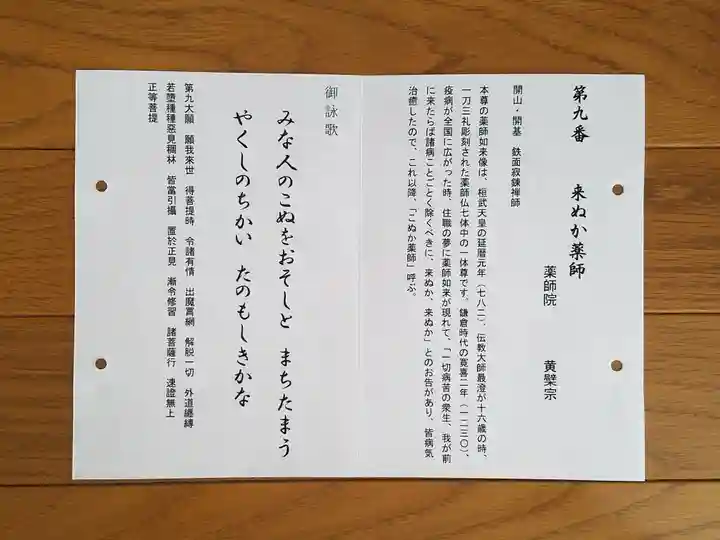 第九番　来ぬか薬師
薬師院　黄檗宗
開山・開基　鉄面寂錬禅師
本尊の薬師如来像は、桓武天皇の延暦元年（七八二）、伝教大師最澄が十六歳の時、
一刀三礼彫刻された薬師仏七体中の一体尊です。鎌倉時代の寛喜二年（一二三〇）、
疫病が全国に広がった時、住職の夢に薬師如来が現れて、「一切病苦の衆生、我が前
に来たらば諸病ことごとく除くべきに、来ぬか、来ぬか」とのお告があり、皆病気
治癒したので、これ以降、「こぬか薬師」呼ぶ。
御詠歌
みな人のこぬをおそしと　まちたまう
やくしのちかい　たのもしきかな
第九大願　願我來世　得菩提時　令諸有情　出魔罥網　解脱一切　外道纏縛
若墮種種惡見稠林　皆當引攝　置於正見　漸令修習　諸菩薩行　速證無上
正等菩提